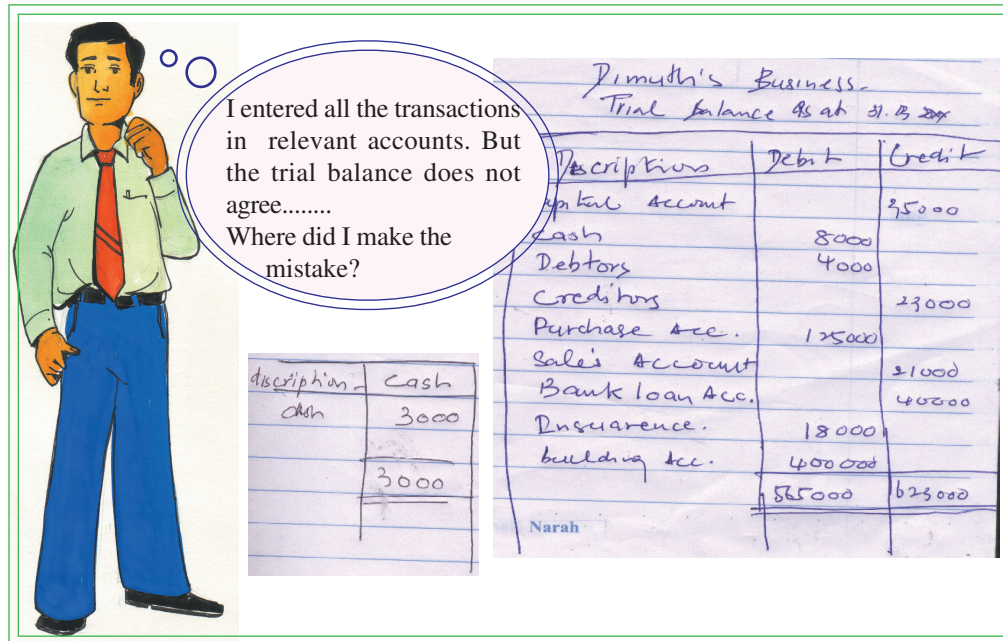 I entered all the transactions
in relevant accounts. But
the trial balance does not
agree........
Where did I make the
mistake?
Dimuth's Business.
Trial balance as at 31.
Discriptions Debit Credit
apital Account 35000
Cash 8000
Debtors 4000
Creditors 23000
Purchase Acc. 125000
Sale's Account 21000
Bank loan Acc. 40000
Insuarence. 18000
building Acc. 400000
565000 623000
Narah
discription Cash
cash 3000
3000